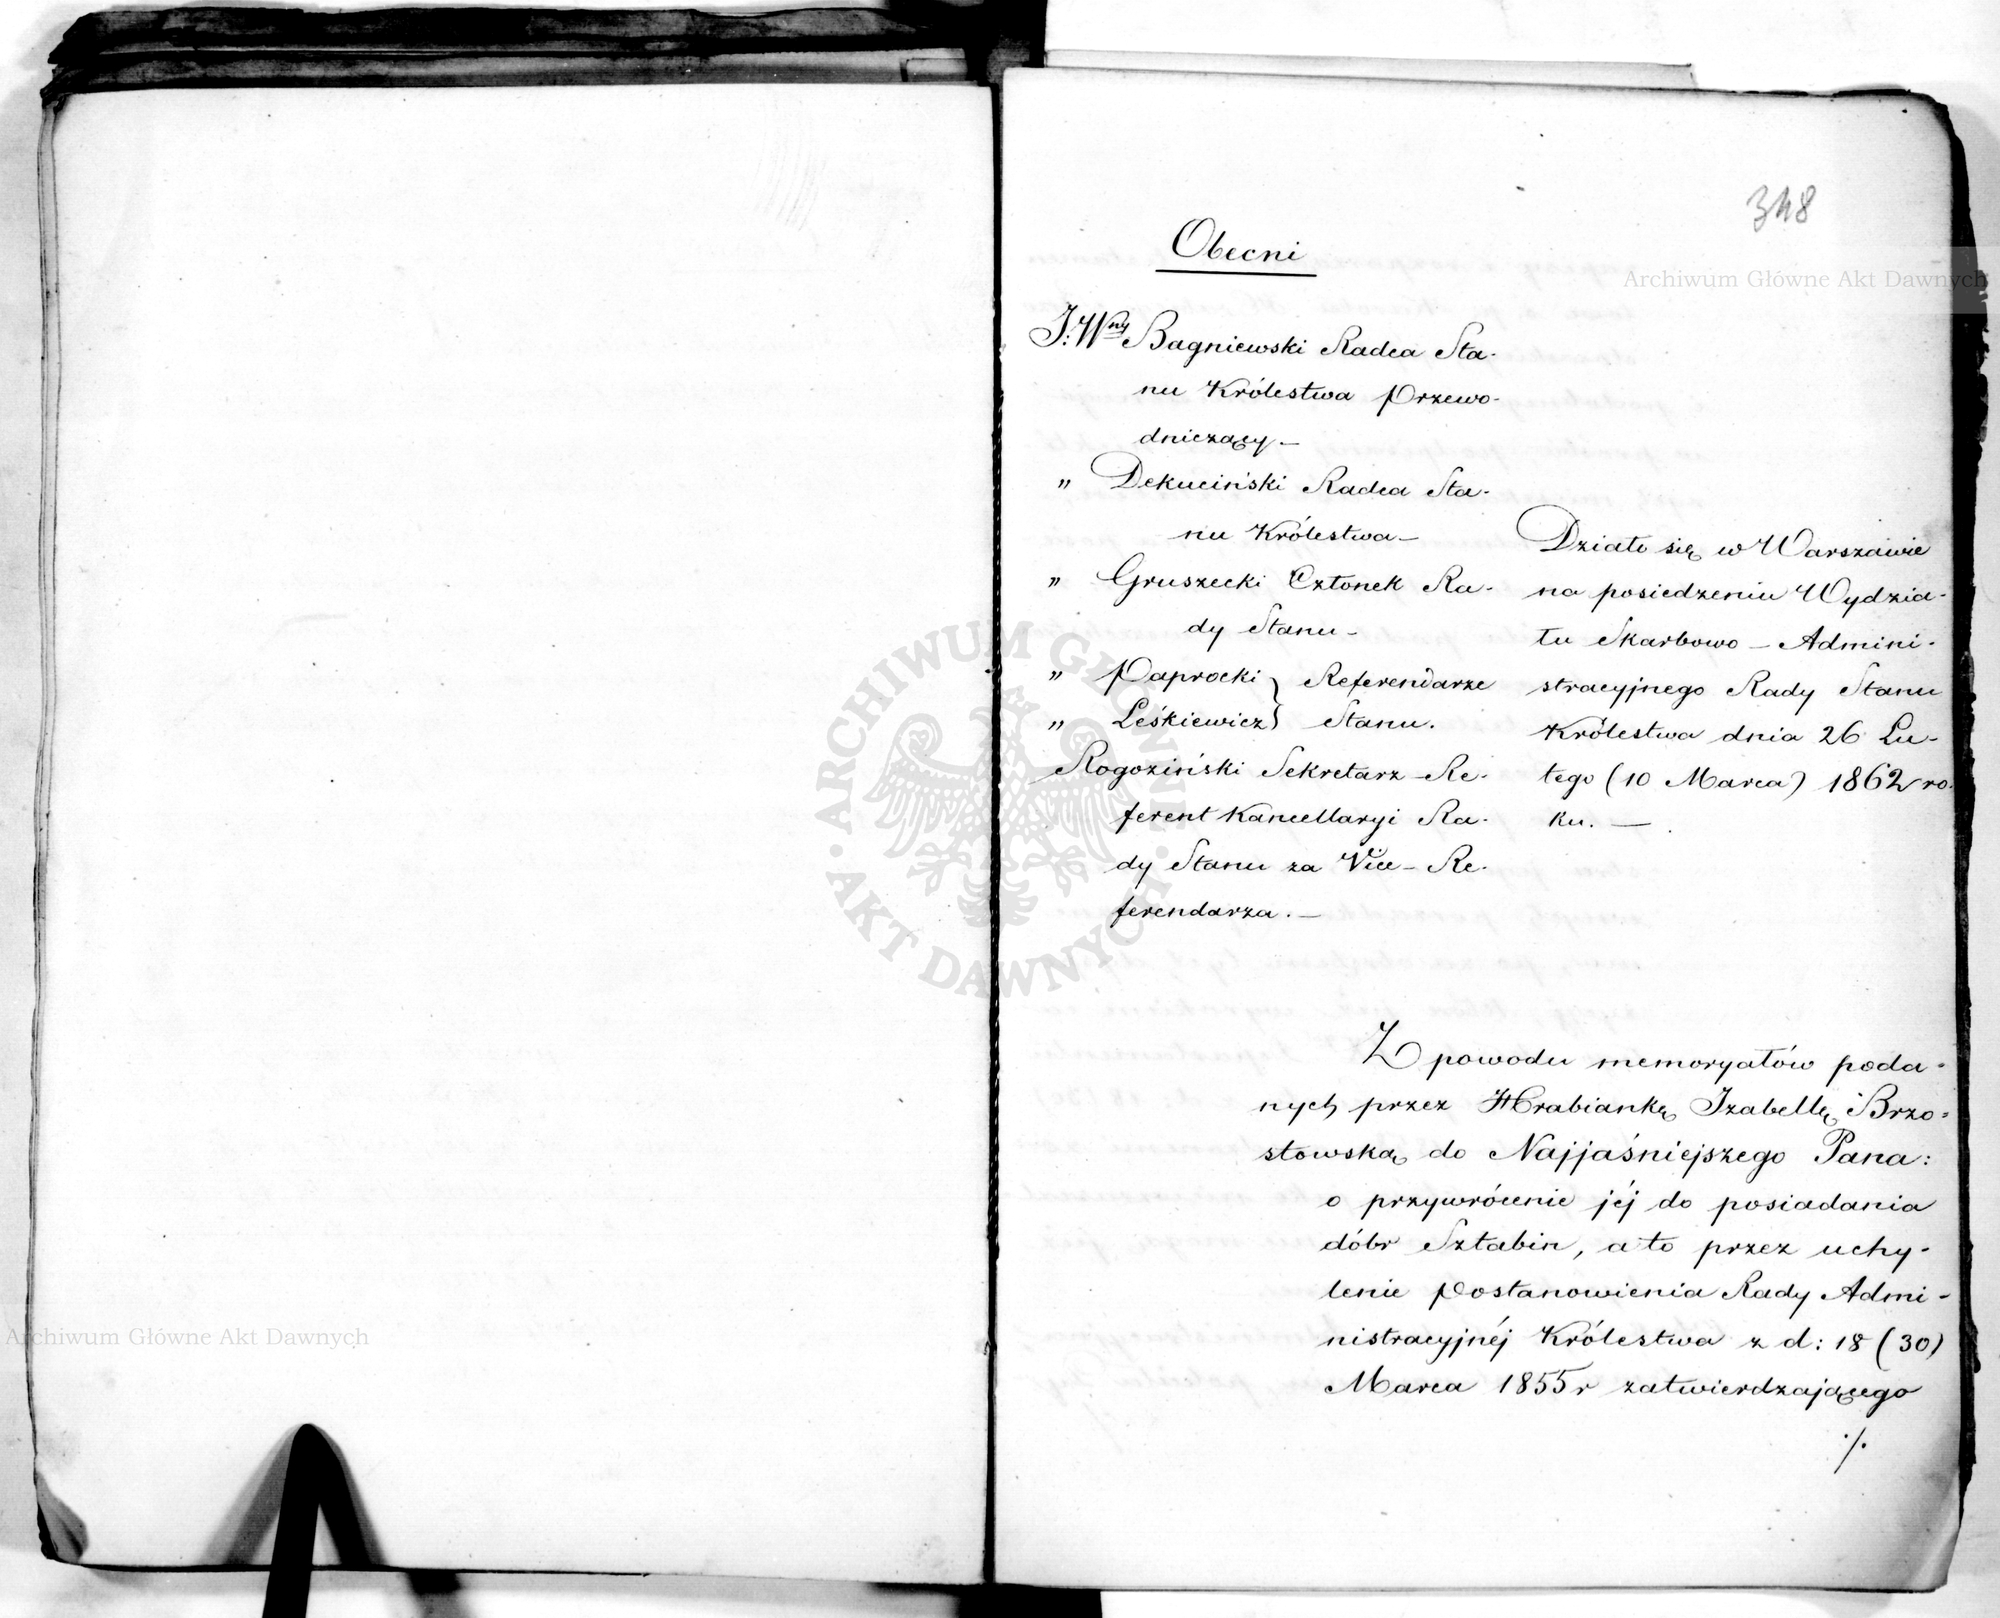 348
Archiwum Główne Akt Dawnych
Obecni
J:Wny Bagniewski Radca Sta-
nu Królestwa Przewo-
dniczący –
„ Dekuciński Radca Sta-
nu Królestwa –
„ Gruszecki Członek Ra-
dy Stanu –
„ Paprocki } Referendarze
„ Leśkiewicz } Stanu.
Rogoziński Sekretarz – Re-
ferent Kancellaryi Ra-
dy Stanu za Vice – Re-
ferendarza. –
Działo się w Warszawie
na posiedzeniu Wydzia-
łu Skarbowo – Admini-
stracyjnego Rady Stanu
Królestwa dnia 26 Lu-
tego (10 Marca) 1862 ro-
ku. –
ARCHIWUM GŁÓWNE AKT DAWNYCH
Z powodu memoryałów poda-
nych przez Hrabiankę Izabellę Brzo-
stowską do Najjaśniejszego Pana:
o przywrócenie jéj do posiadania
dóbr Sztabin, a to przez uchy-
lenie Postanowienia Rady Admi-
nistracyjnéj Królestwa z d: 18 (30)
Marca 1855 r zatwierdzającego
./.
Archiwum Główne Akt Dawnych